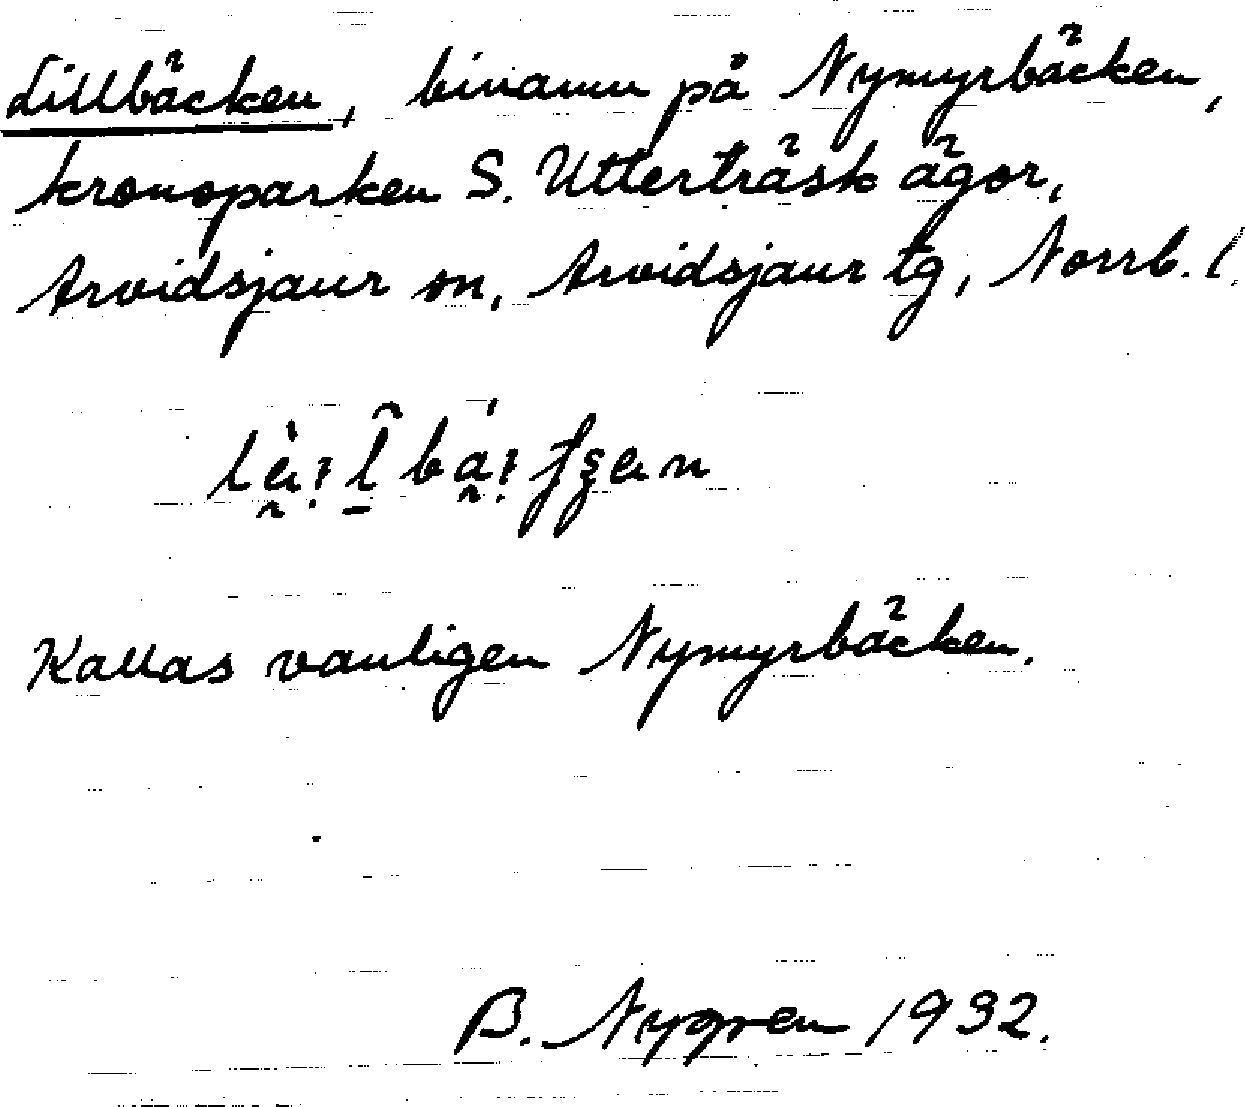 Lillbäcken, binamn på Nymyrbäcken,
kronoparken S. Utterträsk ägor,
Arvidsjaur sn, Arvidsjaur tg, Norrb. l.
Kallas vanligen Nymyrbäcken.
B. Nygren 1932.